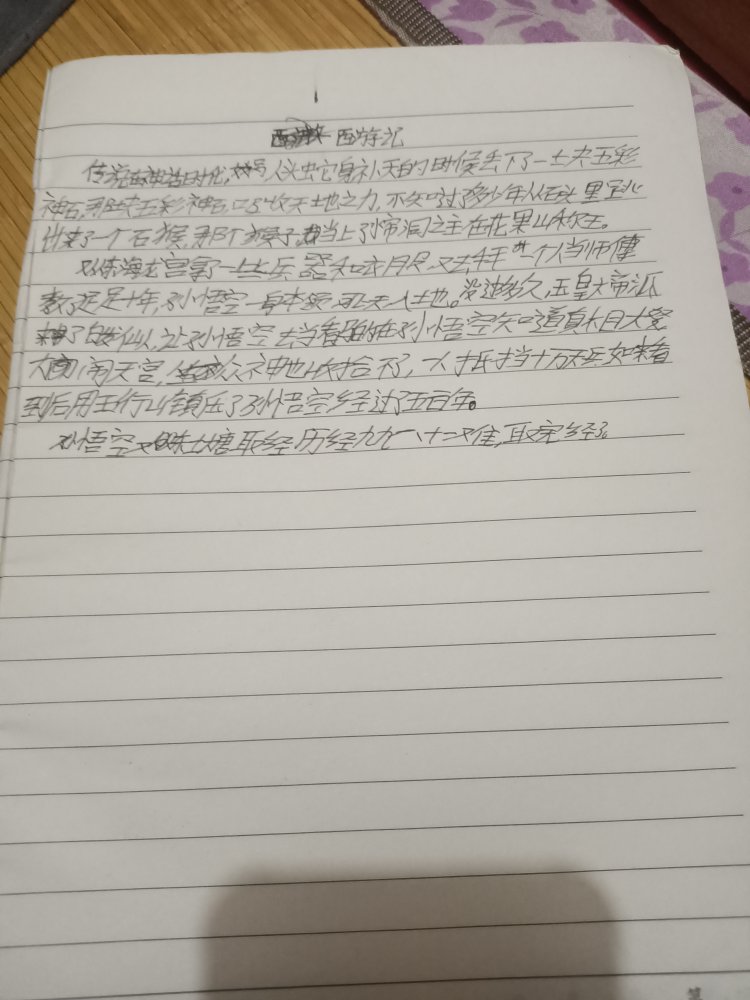 西游记
传说在神话时代,人头蛇身补天的时候丢下了一块五彩
神石,那块五彩神石,吸收天地之力,不知过多少年从石头里
了一个石猴,那个猴子当上了帘洞之主在花果山称王。
东海龙宫拿了一些兵器和衣服,又去一个人当师傅
教了足足十年,孙悟空一身本领,飞天入土地。没过多久,玉皇大帝派
了仙,让孙悟空去当孙悟空知道真相大发
闹天宫,众神也收拾不了,一人抵挡十万天兵如来看
到后用五行山镇压了孙悟空经过了五百年。
孙悟空又取经历经九九八十二难,取完经了。
第